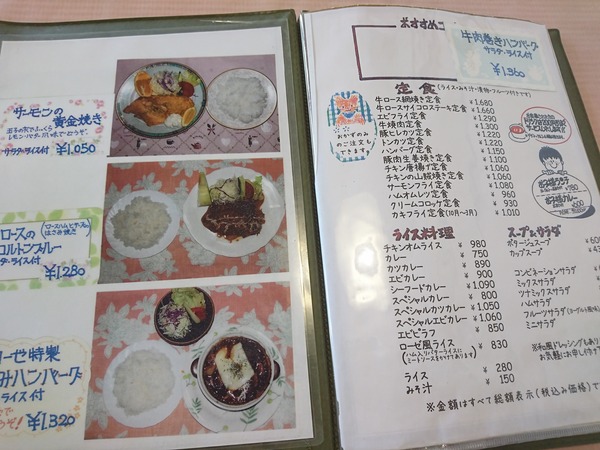 サーモンの
黄金焼き
サラダ・ライス付 ¥1,050
ロースの
ロースハムとチーズの
はさみ焼き
コルドンブルー
ダ・ライス付
¥1,280
ーゼ特製
みハンバーグ
ライス付
¥1,320
おすすめ
牛肉巻きハンバーグ
サラダ・ライス付
¥1,360
定食 (ライス・みそ汁・漬物・フルーツ付きです)
牛ロース網焼き定食 ¥1,680
牛ロースサイコロステーキ定食 ¥1,660
エビフライ定食 ¥1,290
牛焼肉定食 ¥1,300
豚ヒレカツ定食 ¥1,220
トンカツ定食 ¥1,220
ハンバーグ定食 ¥1,150
豚肉生姜焼き定食 ¥1,100
チキン唐揚げ定食 ¥1,060
チキンの山賊焼き定食 ¥1,060
サーモンフライ定食 ¥1,080
ハムオムレツ定食 ¥960
クリームコロッケ定食 ¥930
カキフライ定食(10月~3月) ¥1,010
おかずのみ
のご注文も
できます。
ライス料理
チキンオムライス ¥980
カレー ¥750
カツカレー ¥890
エビカレー ¥890
シーフードカレー ¥1,090
スペシャルカレー ¥800
スペシャルカツカレー ¥1,050
スペシャルエビカレー ¥1,060
エビピラフ ¥850
ローゼ風ライス ¥830
(ハム入りバターライスに
ミートソースをかけてあります)
ライス ¥280
みそ汁 ¥150
スープ&サラダ
ポタージュスープ
カップスープ
コンビネーションサラダ
ミックスサラダ
ツナミックスサラダ
ハムサラダ
フルーツサラダ(ヨーグルト風味)
ミニサラダ
※和風ドレッシングもあり
お気軽にお申し付け
※金額はすべて総額表示(税込み価格)で